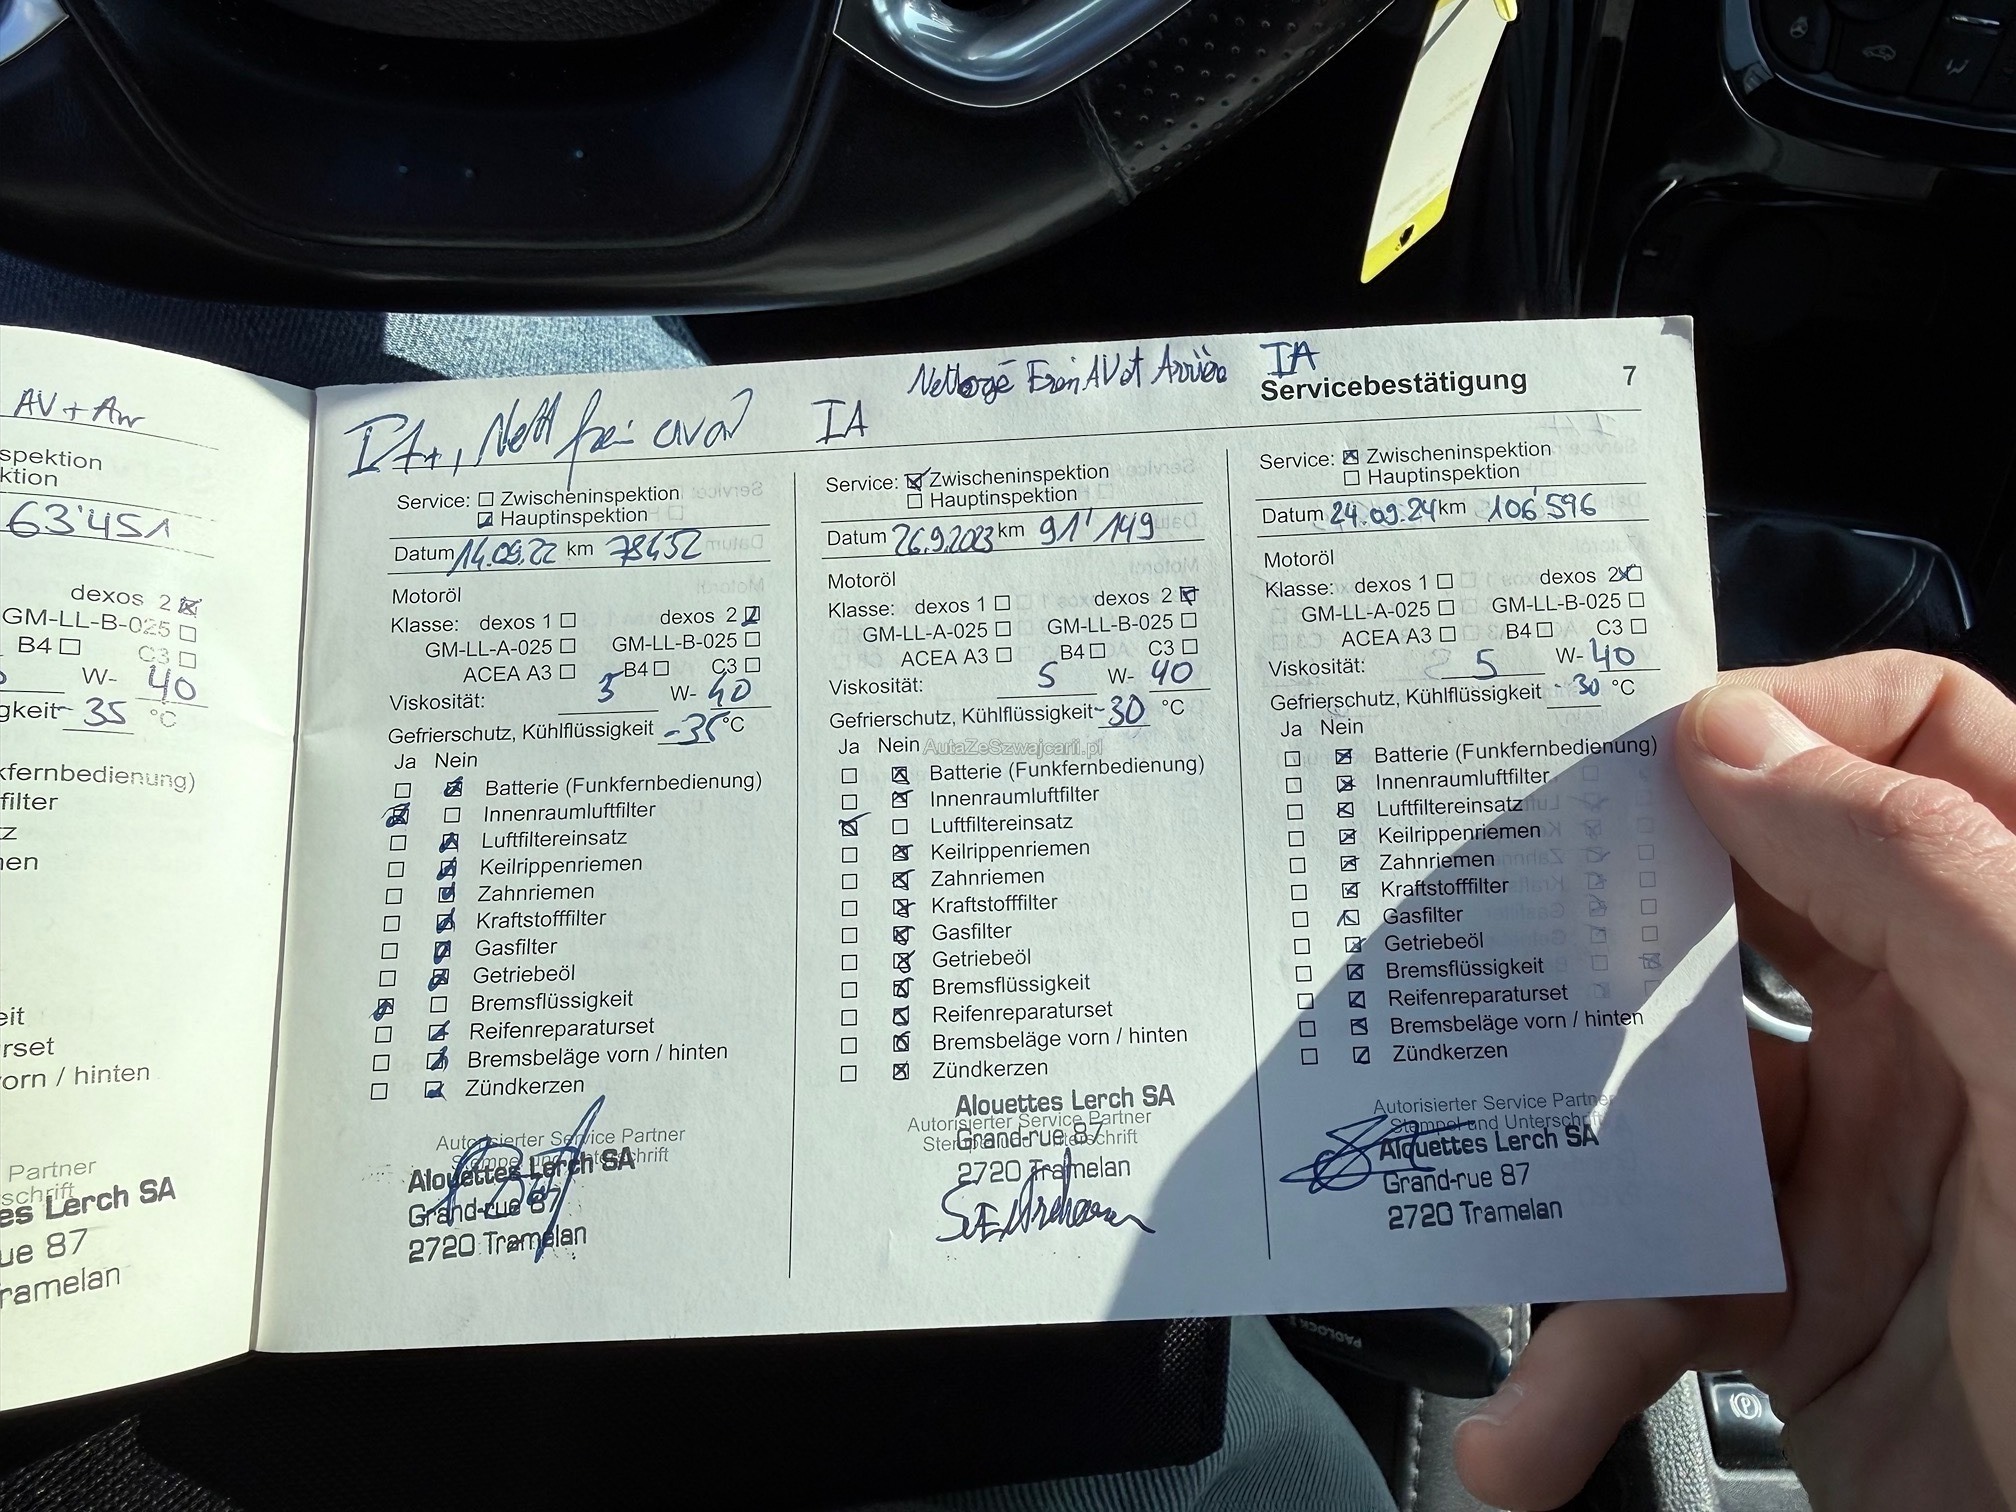 AV + Arr
spektion
ktion
63'451
dexos 2
GM-LL-B-025
B4 C3
W- 40
gkeit - 35 °C
kfernbedienung)
filter
z
en
eit
rset
orn / hinten
Partner
schrift
es Lerch SA
ue 87
ramelan
Servicebestätigung 7
IA+, Nett frein avar
Service: Zwischeninspektion
Hauptinspektion
Datum 14.09.22 km 78432
Motoröl
Klasse: dexos 1 dexos 2
GM-LL-A-025 GM-LL-B-025
ACEA A3 B4 C3
Viskosität: 5 W- 40
Gefrierschutz, Kühlflüssigkeit -35 °C
Ja Nein
Batterie (Funkfernbedienung)
Innenraumluftfilter
Luftfiltereinsatz
Keilrippenriemen
Zahnriemen
Kraftstofffilter
Gasfilter
Getriebeöl
Bremsflüssigkeit
Reifenreparaturset
Bremsbeläge vorn / hinten
Zündkerzen
Autorisierter Service Partner
Stempel und Unterschrift
Alouettes Lerch SA
Grand-rue 87
2720 Tramelan
IA
Service: Zwischeninspektion
Hauptinspektion
Datum 26.9.2023 km 91'149
Motoröl
Klasse: dexos 1 dexos 2
GM-LL-A-025 GM-LL-B-025
ACEA A3 B4 C3
Viskosität: 5 W- 40
Gefrierschutz, Kühlflüssigkeit -30 °C
Ja Nein
AutaZeSzwajcarii.pl
Batterie (Funkfernbedienung)
Innenraumluftfilter
Luftfiltereinsatz
Keilrippenriemen
Zahnriemen
Kraftstofffilter
Gasfilter
Getriebeöl
Bremsflüssigkeit
Reifenreparaturset
Bremsbeläge vorn / hinten
Zündkerzen
Alouettes Lerch SA
Autorisierter Service Partner
Grand-rue 87
Stempel und Unterschrift
2720 Tramelan
Nettoyé Frein AV et Arrière IA
Service: Zwischeninspektion
Hauptinspektion
Datum 24.09.24 km 106'596
Motoröl
Klasse: dexos 1 dexos 2
GM-LL-A-025 GM-LL-B-025
ACEA A3 B4 C3
Viskosität: 5 W- 40
Gefrierschutz, Kühlflüssigkeit -30 °C
Ja Nein
Batterie (Funkfernbedienung)
Innenraumluftfilter
Luftfiltereinsatz
Keilrippenriemen
Zahnriemen
Kraftstofffilter
Gasfilter
Getriebeöl
Bremsflüssigkeit
Reifenreparaturset
Bremsbeläge vorn / hinten
Zündkerzen
Autorisierter Service Partner
Stempel und Unterschrift
Alouettes Lerch SA
Grand-rue 87
2720 Tramelan